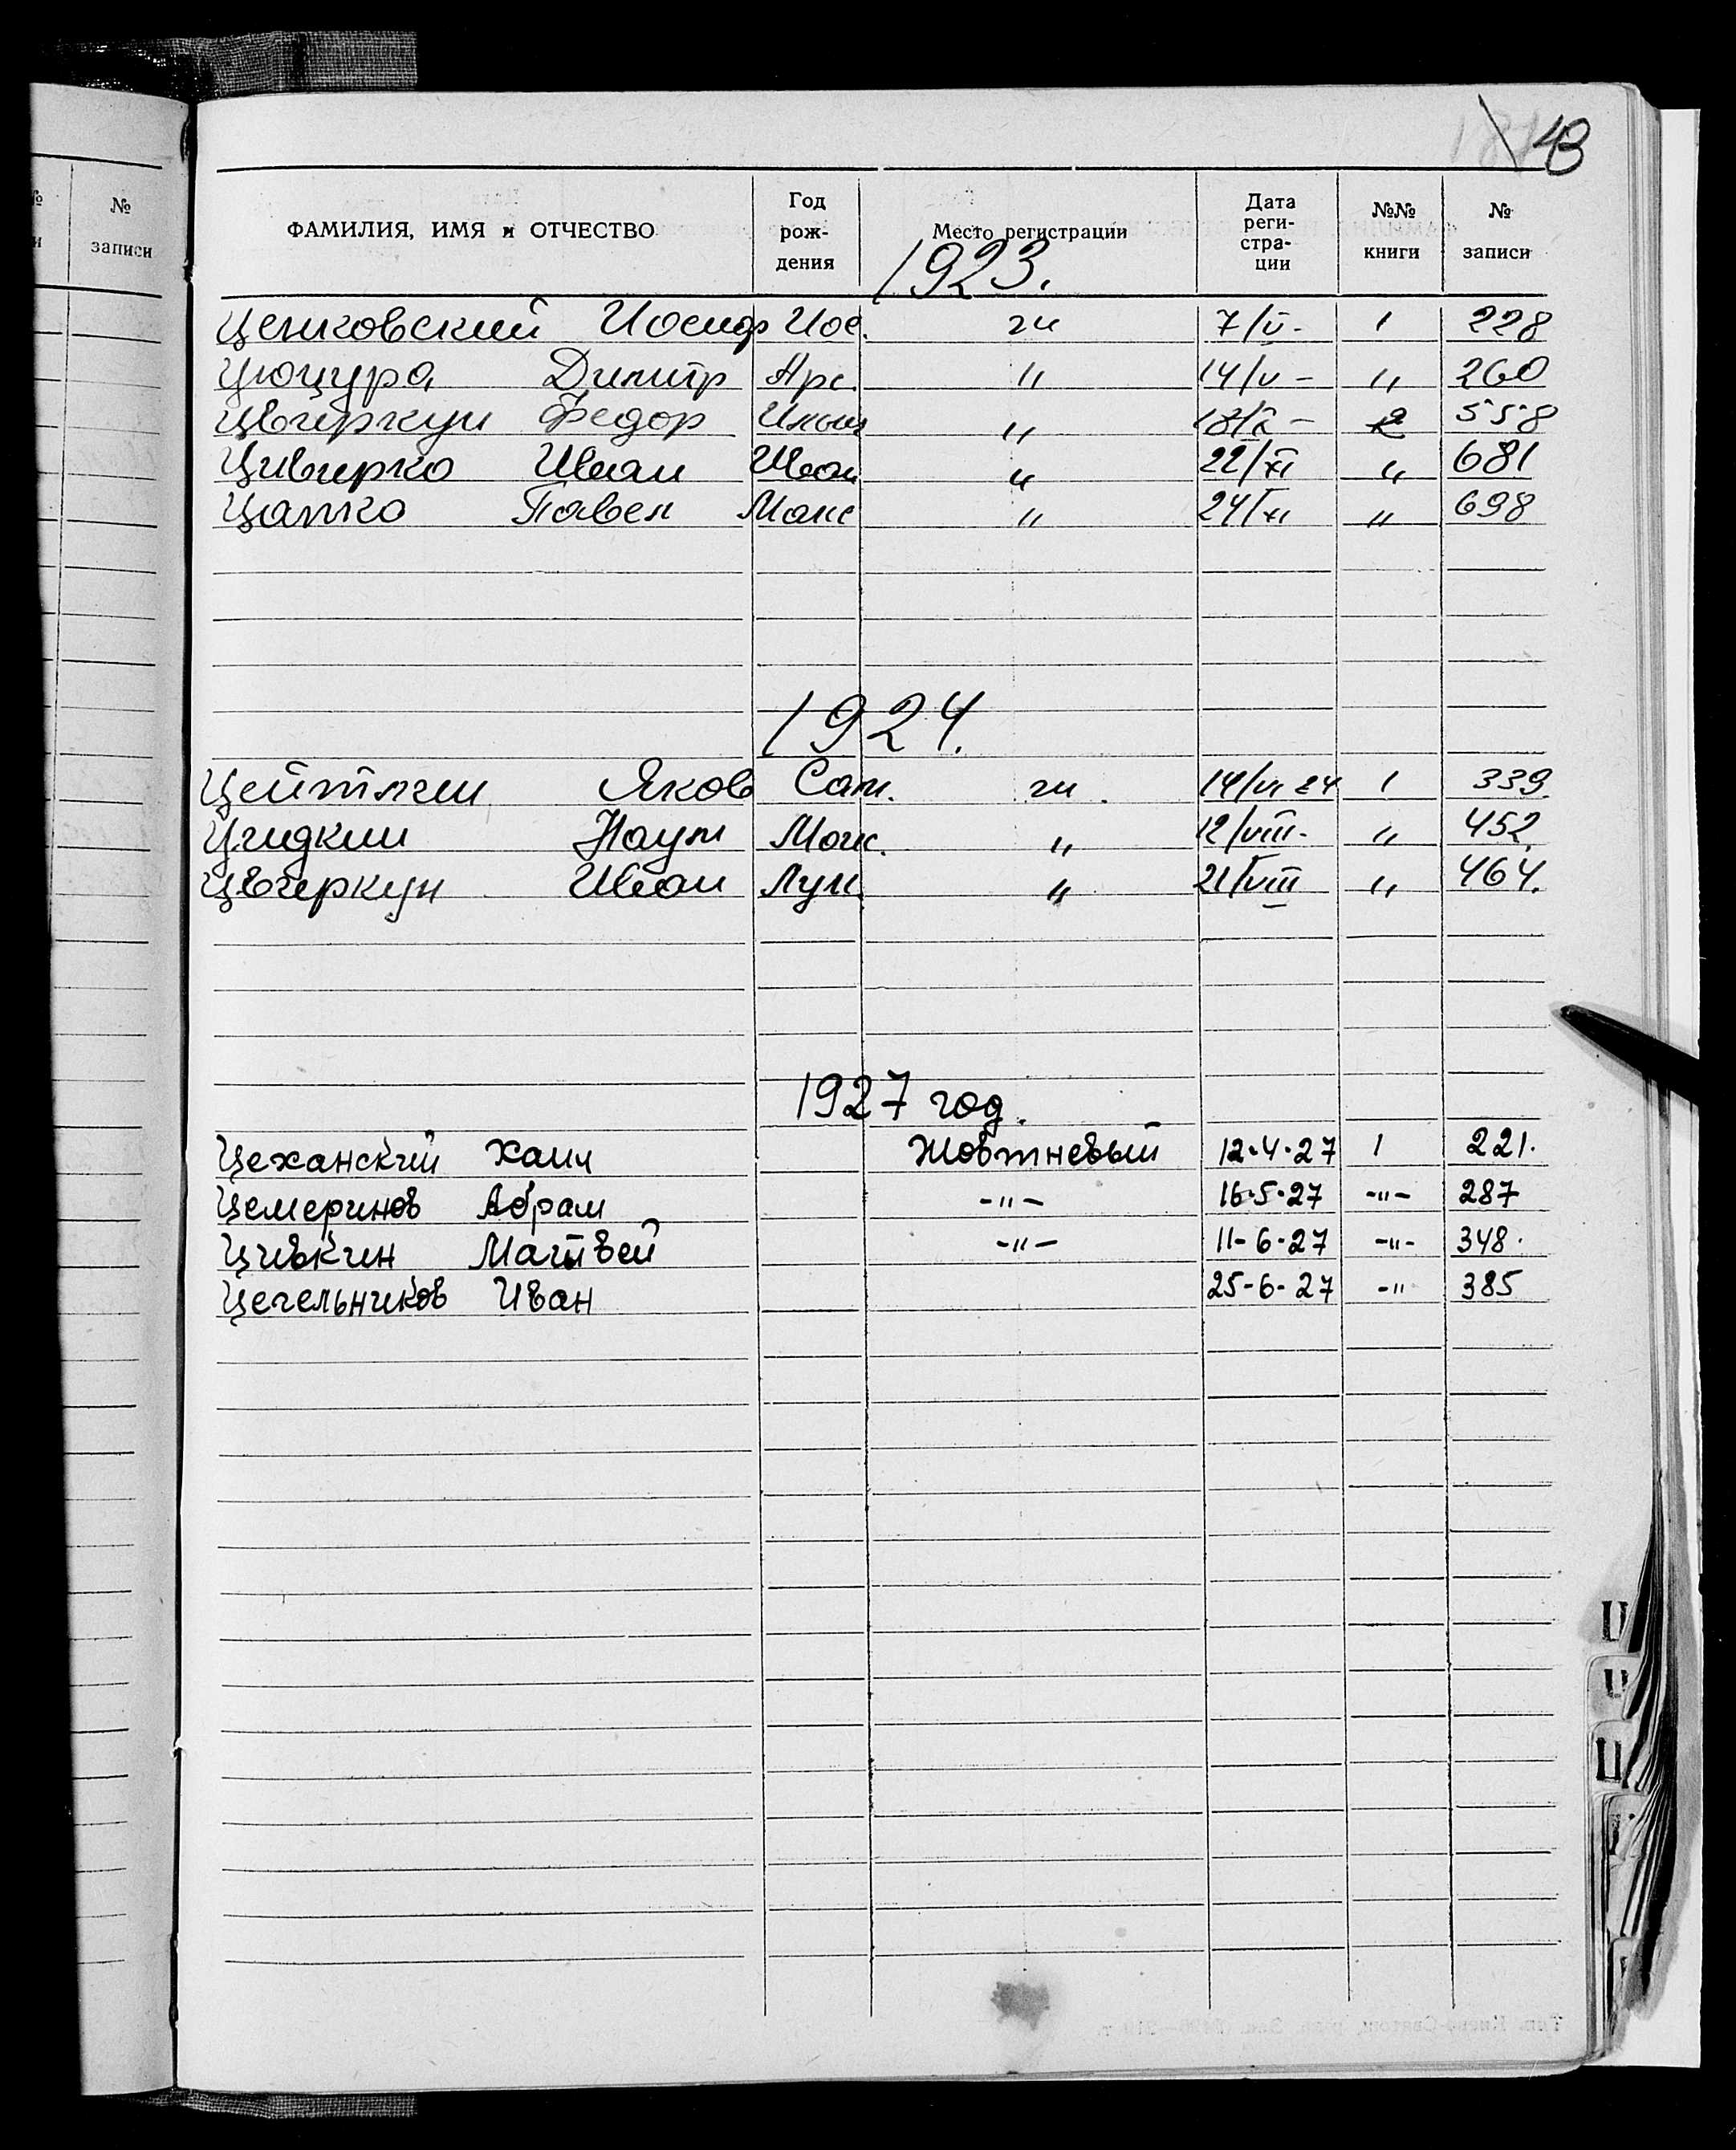 43
№ № записи
ФАМИЛИЯ, ИМЯ и ОТЧЕСТВО Год рождения Место регистрации Дата регистрации №№ книги № записи
1923.
Ценковский Иосиф Иос. ги 7/V- 1 228
Цюцура Димитр Арс. " 14/V- " 260
Цвиркун Федор Ильи " 18/X- 2 558
Цивирко Иван Иван " 22/XI " 681
Цапко Павел Макс " 24/XI " 698
1924.
Цейтлин Яков Сам. ги 14/VI 24 1 339
Наум Моис. " 12/VIII- " 452
Цвиркун Иван Лук. " 21/VIII " 464.
1927 год.
Цеханский Хаим Жовтневый 12.4.27 1 221.
Цемеринов Абрам -"- 16.5.27 -"- 287
Цивкин Матвей -"- 11-6-27 -"- 348.
Цегельников Иван 25-6-27 -" 385